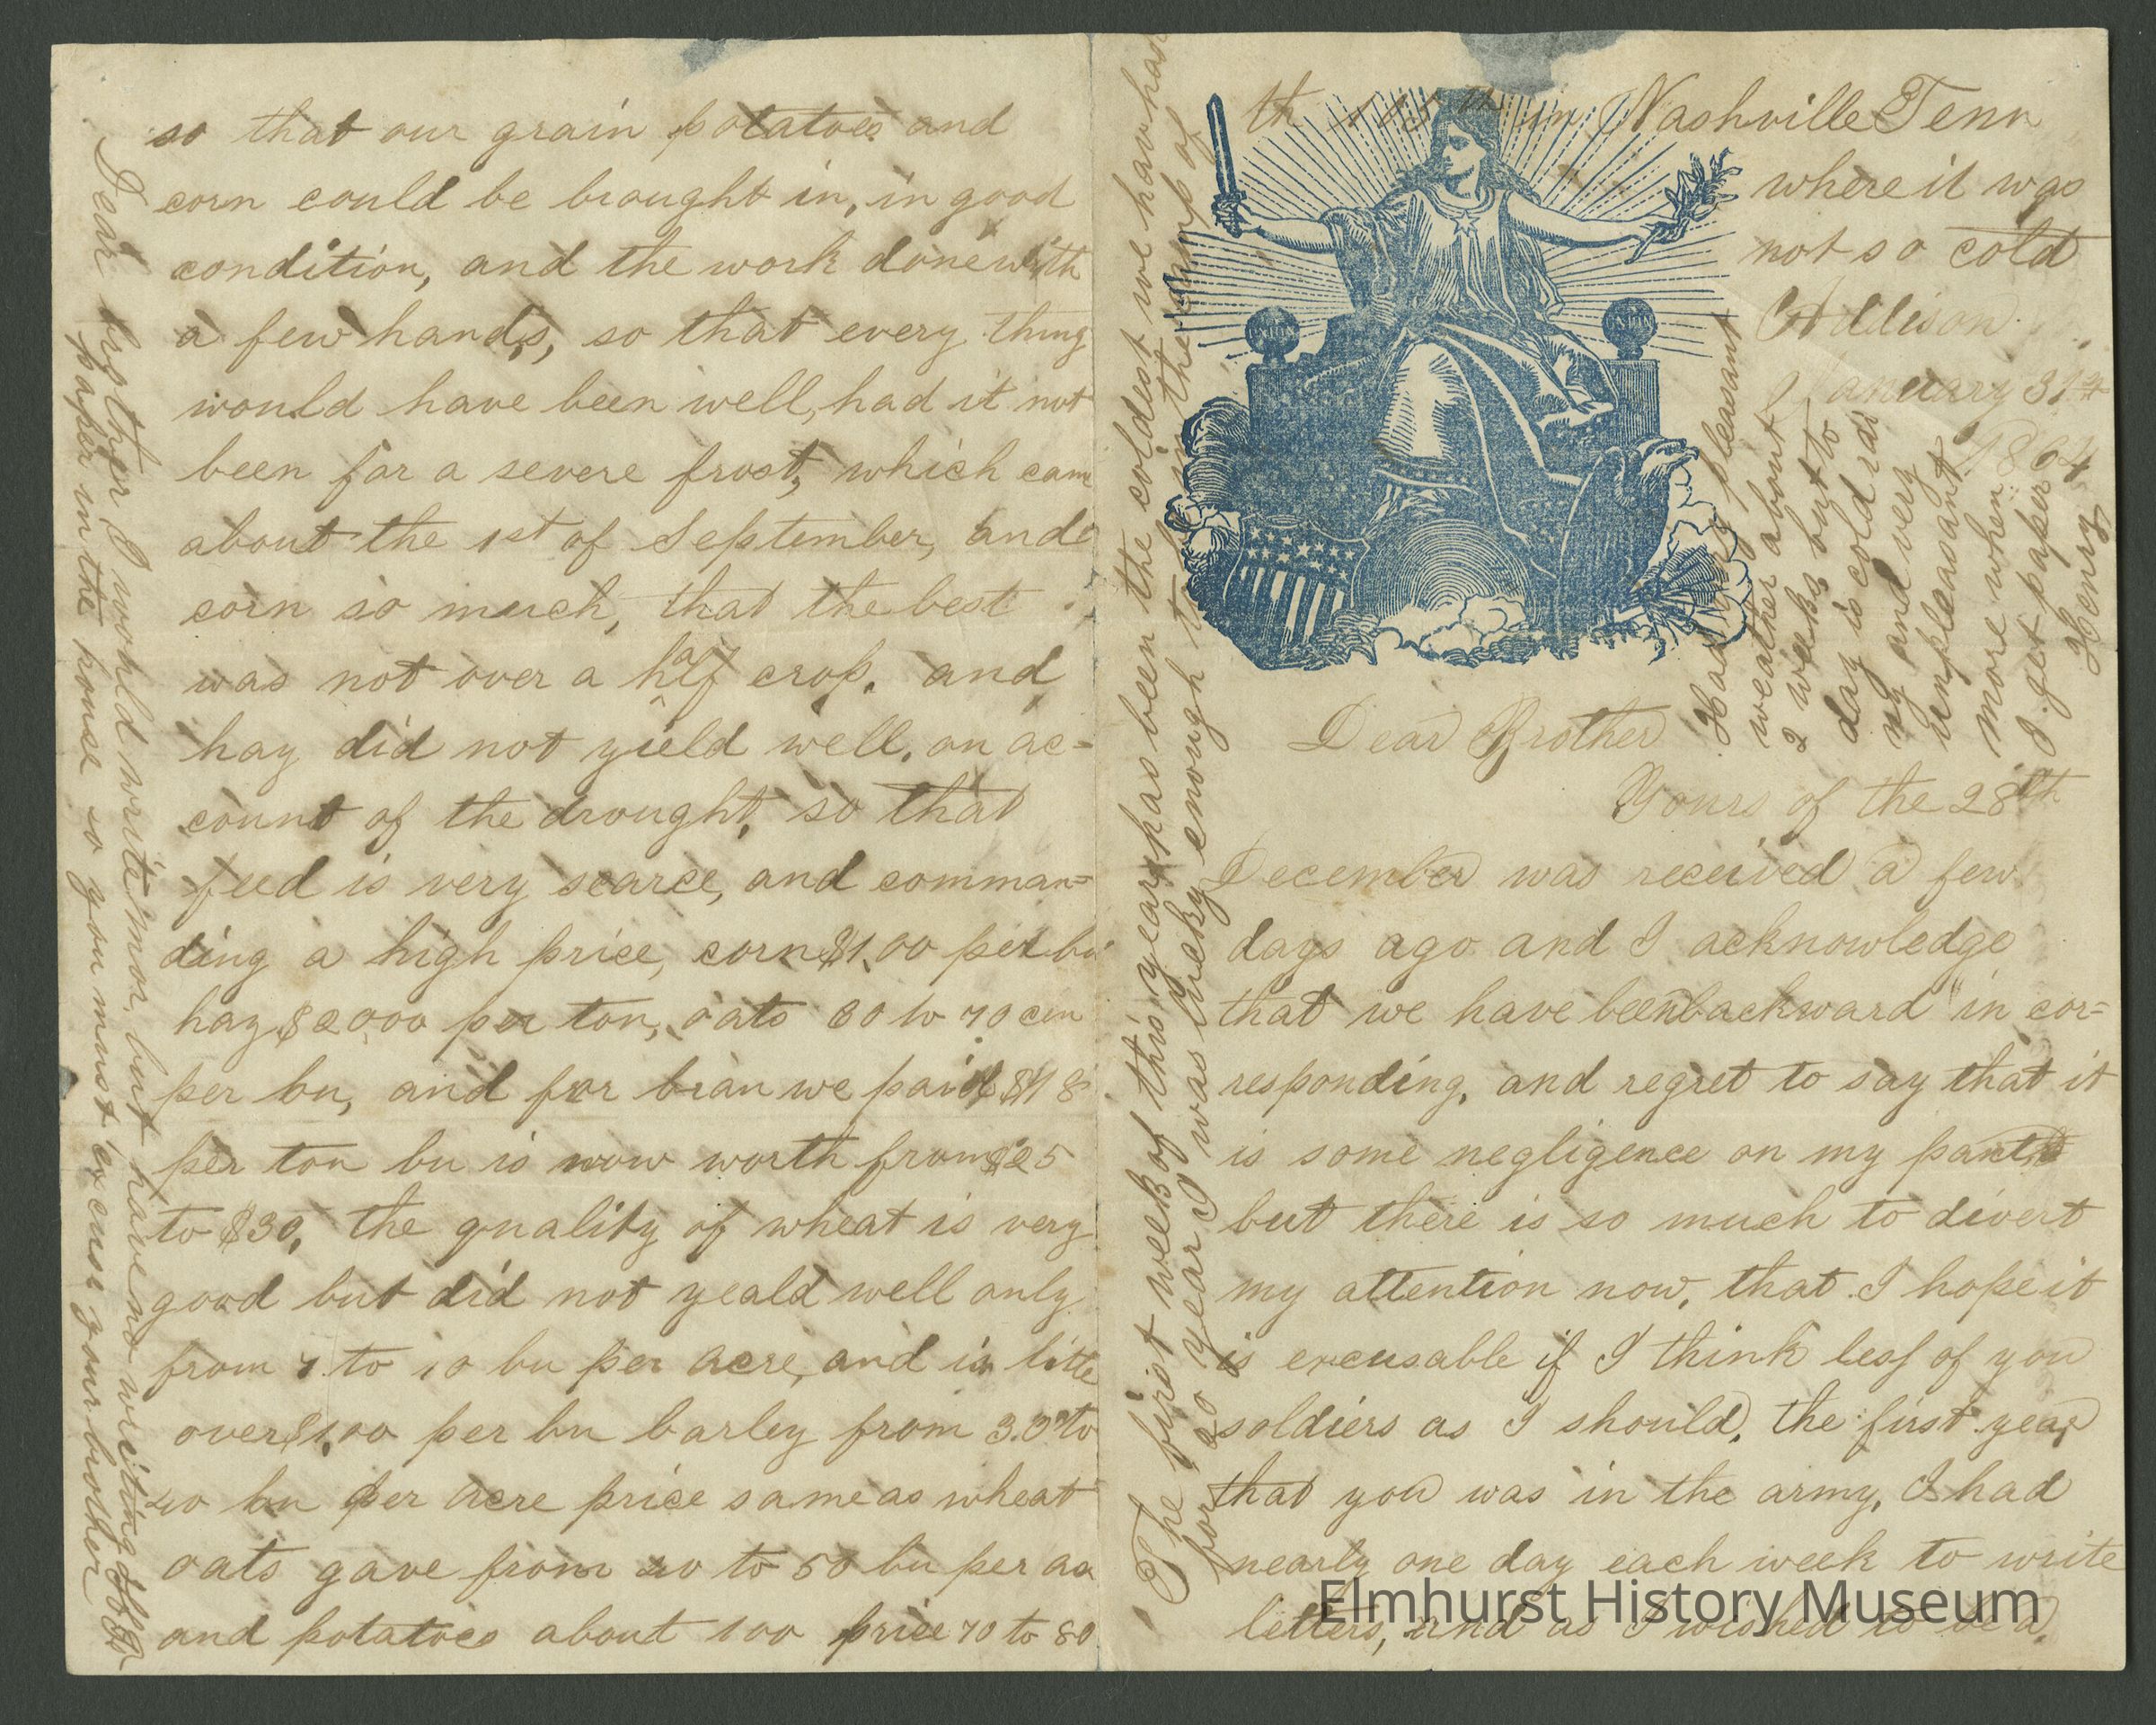 The first week of this year has been the coldest we hav had
for 20 year I was lucky enough to be in the camp of
th 105th in Nashville Tenn
where it was
not so cold
Addison
January 31st
1864
UNION
UNION
Had very pleasant
weather about
2 weeks but to
day is cold rai
ny and very
unpleasant
more when
I get paper
Henry
Dear Brother
Yours of the 28th
December was received a few
days ago and I acknowledge
that we have been backward" in cor=
responding, and regret to say that it
is some negligence on my part
but there is so much to divert
my attention now, that I hope it
is excusable if I think less of you
soldiers as I should, the first year
that you was in the army, I had
nearly one day each week to write
letters, and as I wished to be a
so that our grain potatoes and
corn could be brought in, in good
condition, and the work done with
a few hands, so that every thing
would have been well, had it not
been for a severe frost, which cam
about the 1st of September, and
corn so much, that the best
was not over a half crop. and
hay did not yield well, on ac=
count of the drought, so that
feed is very scarce, and comman=
ding a high price, corn $1,00 per bu
hay $20,00 per ton, oats 60 to 70 cen
per bu, and for bran we paid $18
per ton bu is now worth from $25
to $30, the quality of wheat is very
good but did not yeald well only
from 7 to 10 bu per acre, and is little
over $1,00 per bu barley from 30 to
40 bu per acre price same as wheat
oats gave from 40 to 50 bu per ac
and potatoes about 100 price 70 to 80
Dear brother I would write mor, but have no writing
paper in the house so you must excuse your brother
Elmhurst History Museum